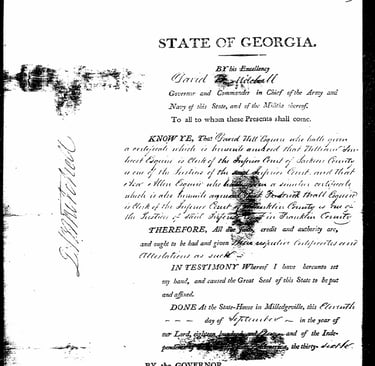 STATE OF GEORGIA.
BY his Excellency
David B. Mitchell
Governor and Commander in Chief of the Army and
Navy of this State, and of the Militia thereof.
To all to whom these Presents shall come.
KNOW YE, That David Esquire who hath given
a certificate which is hereunto annexed that William
Esquire is Clerk of the Inferior Court of Jackson County
is one of the Justices of the said Inferior Court, and that
Allen Esquire who a similar certificate
which is also hereunto Frederick Esquire
is Clerk of the Inferior Court of Franklin County is one of
the Justices of said in Franklin County
THEREFORE, All due faith, credit and authority are,
and ought to be had and given their respective Certificates and
Attestations as such
IN TESTIMONY Whereof I have hereunto set
my hand, and caused the Great Seal of this State to be put
and affixed.
DONE At the State-House in Milledgeville, this Eleventh
day of September in the year of
our Lord, eighteen hundred and and of the Inde-
pendence of America, the thirty-sixth
BY the GOVERNOR
D B Mitchell